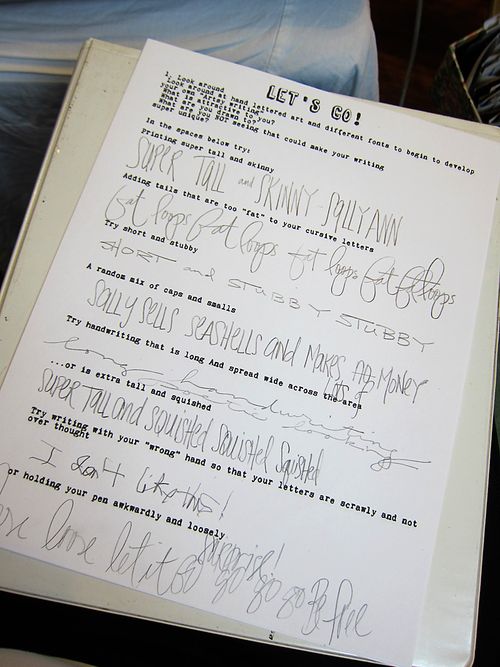 LET'S GO!
1. Look around
Look around at hand lettered art and different fonts to begin to develop
your own artisk writing.
What is attractive to you?
What are you drawn to?
What are you NOT seeing that could make your writing
super unique?
In the spaces below try:
Printing super tall and skinny
SUPER TALL and SKINNY SALLY ANN
Adding tails that are too "fat" to your cursive letters
fat loops fat loops fat loops fat loops
Try short and stubby
SHORT and STUBBY STUBBY
A random mix of caps and smalls
SAlly SEllS SEASHEllS and MAKES MONEY
LOTS of
Try handwriting that is long And spread wide across the area
long handwriting
looking
...or is extra tall and squished
SUPER TAll and SQUISHED SQUISHED SQUISHED
Try writing with your "wrong" hand so that your letters are scrawly and not
over thought
I don't like this!
or holding your pen awkwardly and loosely
surprise!
loose let it go go go go Be free